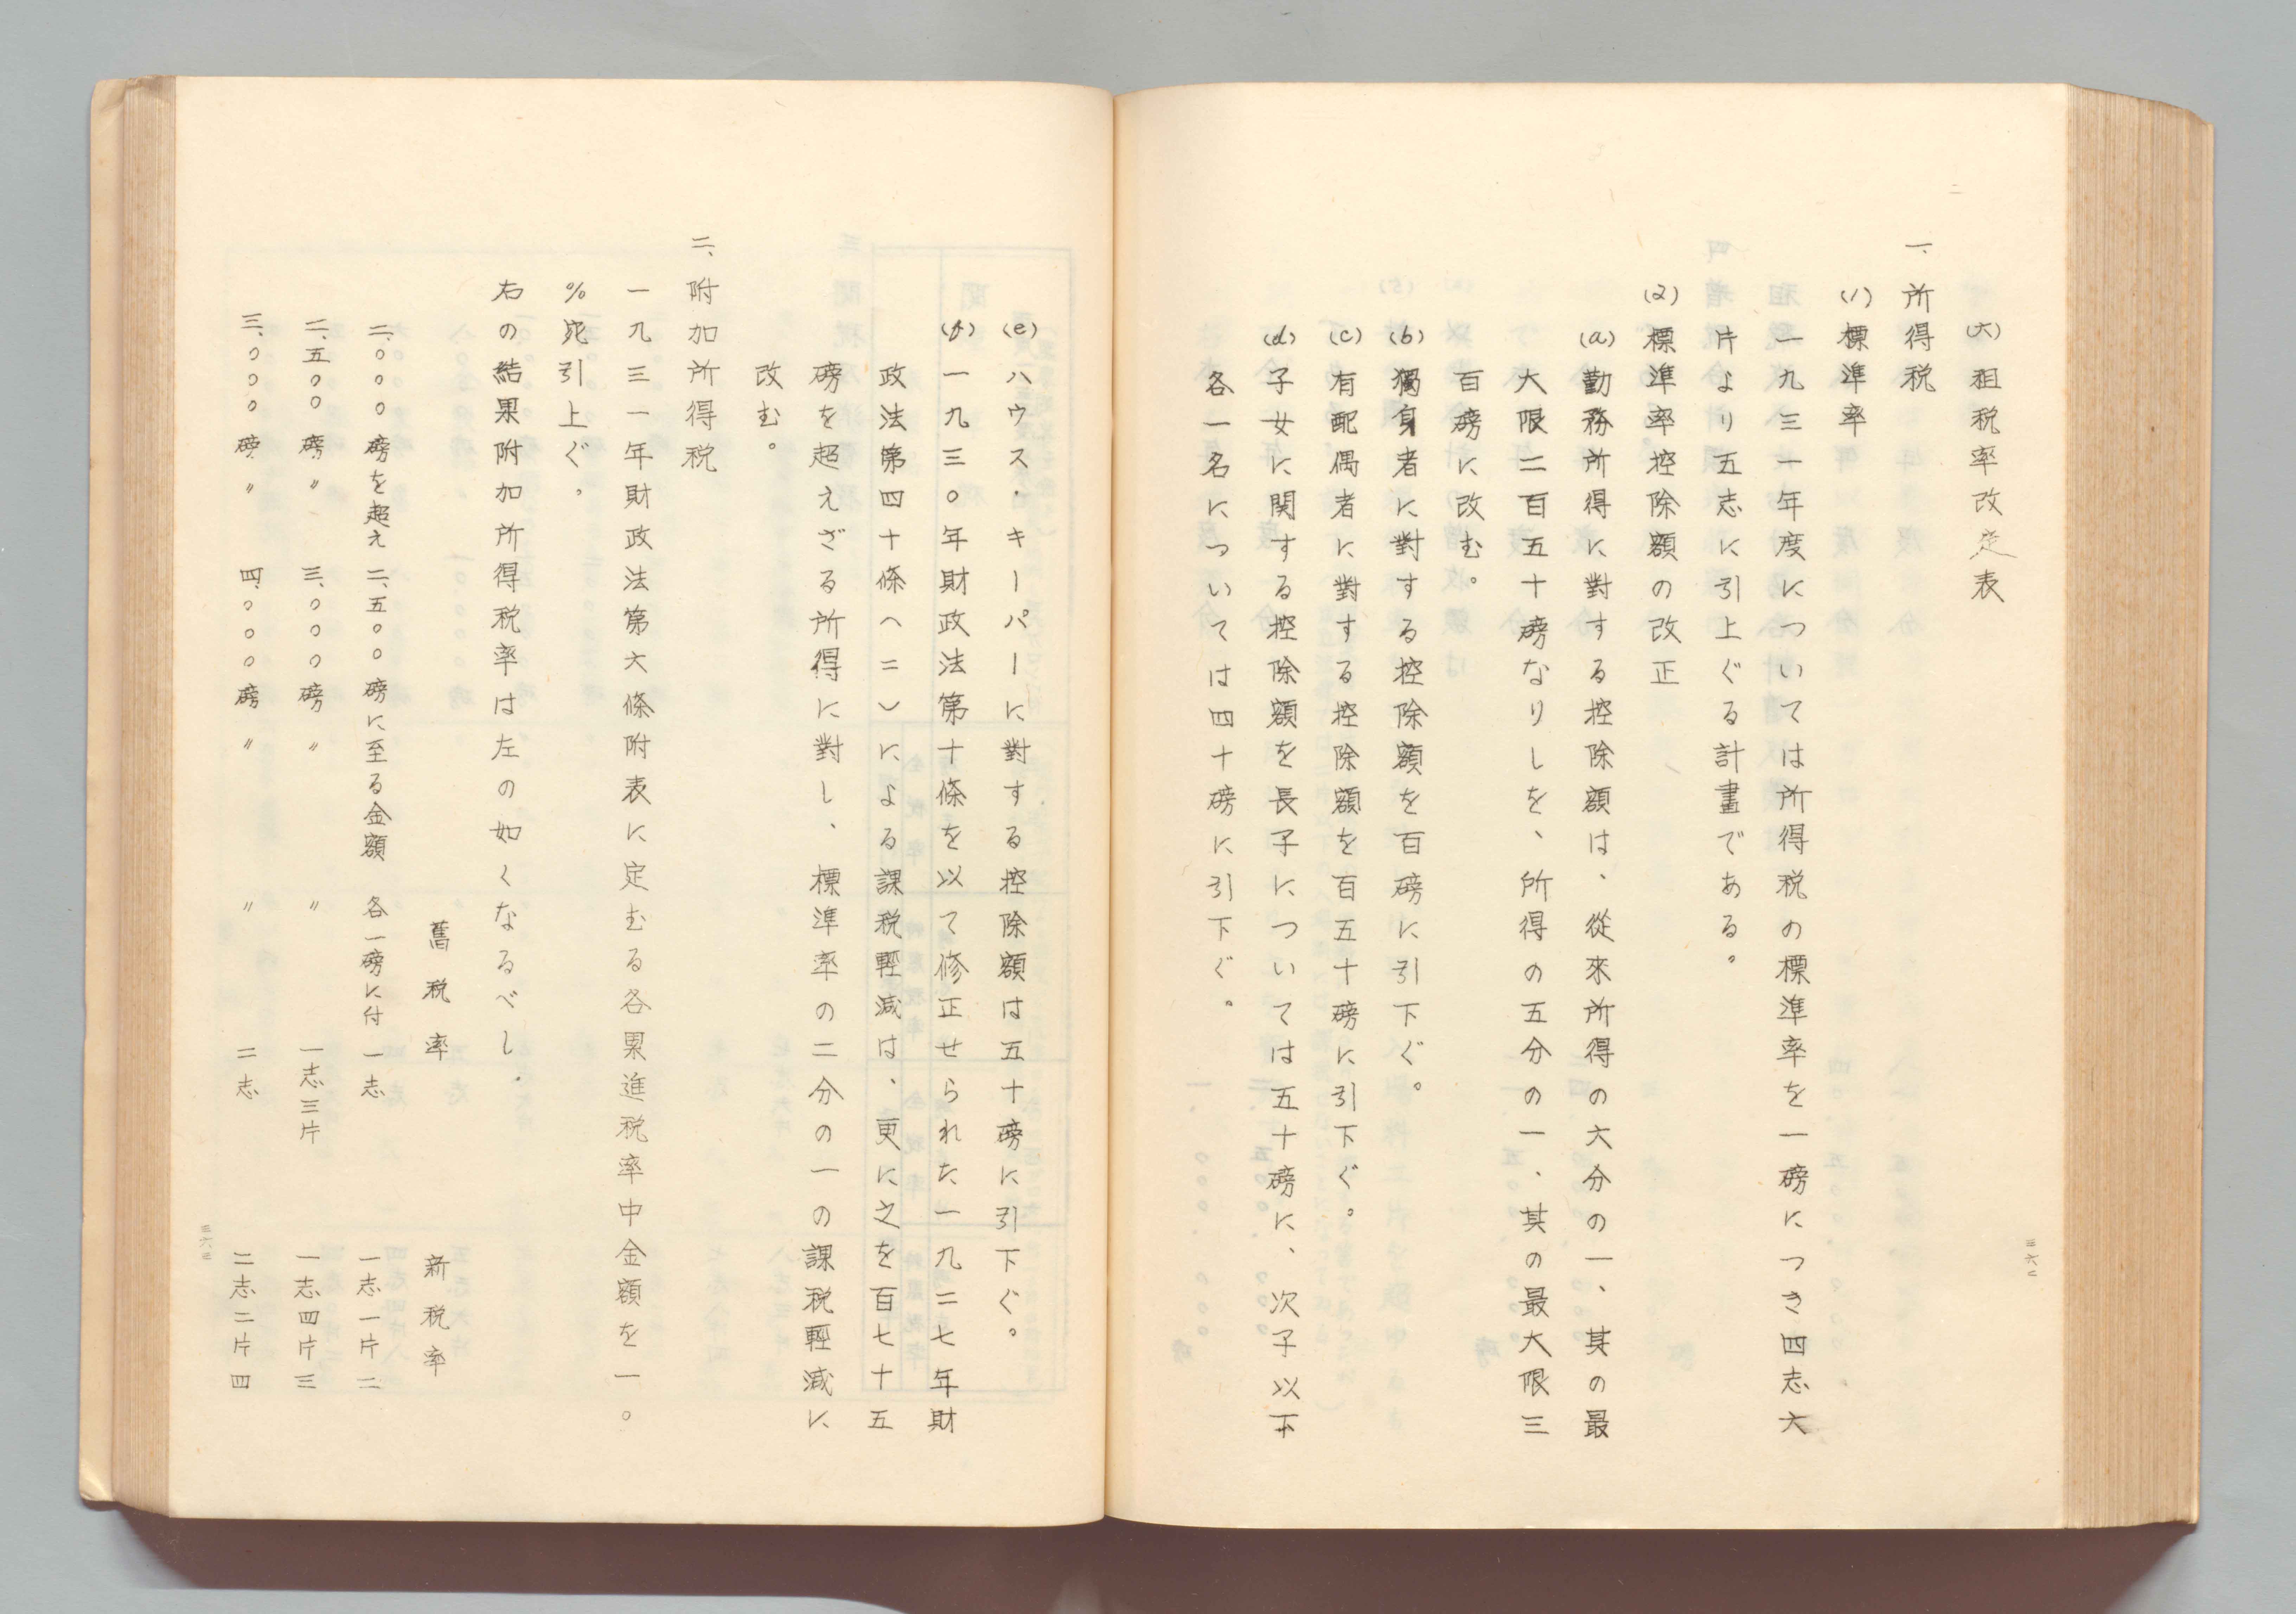 (六)租税率改定表
一、所得税
(1)標準率
一九三一年度については所得税の標準率を一磅につき四志六
片より五志に引上ぐる計畫である。
(2)標準率控除額の改正
(a)勤務所得に對する控除額は、從來所得の六分の一、其の最
大限二百五十磅なりしを、所得の五分の一、其の最大限三
百磅に改む。
(b)獨身者に對する控除額を百磅に引下ぐ。
(c)有配偶者に對する控除額を百五十磅に引下ぐ。
(d)子女に関する控除額を長子については五十磅に、次子以下
各一名については四十磅に引下ぐ。
三六二
(e)ハウス・キーパーに對する控除額は五十磅に引下ぐ。
(f)一九三〇年財政法第十條を以て修正せられた一九二七年財
政法第四十條(二)による課税輕減は、更に之を百七十五
磅を超えざる所得に對し、標準率の二分の一の課税輕減に
改む。
二、附加所得税
一九三一年財政法第六條附表に定むる各累進税率中金額を一〇
%宛引上ぐ。
右の結果附加所得税率は左の如くなるべし.
舊税率 新税率
二、〇〇〇磅を超え 二、五〇〇磅に至る金額 各一磅に付 一志 一志一片二
二、五〇〇磅〃 三、〇〇〇磅〃 〃 一志三片 一志四片三
三、〇〇〇磅〃 四、〇〇〇磅〃 〃 二志 二志二片四
三六三